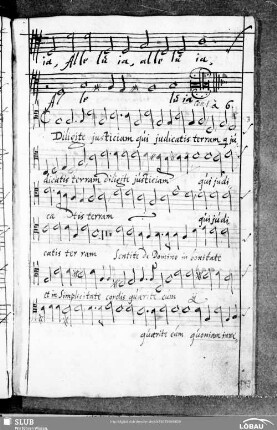 ia, Alle lu ia, alle lu ia,
A le lu ia
à 6.
Diligite justiciam qui judicatis terram q ju
dicatis terram diligite justiciam qui judi
ca tis terram qui judi
catis ter ram Sentite de Domino in bonitate
et in Simplicitate cordis quærite eum
quærite eum quoniam inve
SLUB
LÖBAU